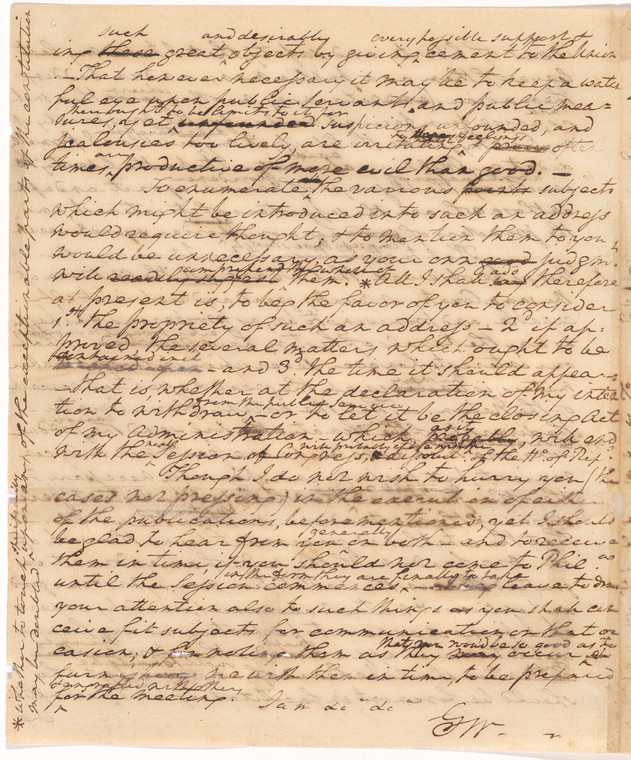 such and desirably every possible support &
ing these great objects by giving cement to the Union
—That however necessary it may be to keep a watch
ful eye upon public servants, and public mea-
there ought to be limits to it for
sures, yet suspicions unfounded, and
jealousies too lively, are irritating to honest feelings; & often
times, are productive of more evil than good. —
To enumerate the various points subjects
which might be introduced into such an address
would require thought; & to mention them to you
would be unnecessary, as your own judgmt
comprehend the whole of
will them. *All I shall add therefore
at present is, to beg the favor of you to consider
1st the propriety of such an address — 2d if ap:
proved, the several matters which ought to be
contained in it
— and 3d the time it should appear:
—that is, whether at the declaration of my inten
tion to withdraw from the public service, — or to let it be the closing Act
of my Administration, which as it will end
with the next Session of Congress, of the Ho. of Rep.
Though I do not wish to hurry you (the
cases not pressing) in the execution of either
of the publications, beforementioned, yet I should
be glad to hear from you generally on both — and to receive
them in time, if you should not come to Phila
until the Session commences, in the form they are finally to take
leave to draw
your attention also to such things as you shall con
ceive fit subjects for communication on that oc
casion; & noting them as they occur that you would be so good as to
furnish me with them in time, to be prepared
and engrafted with others
for the meeting. I am &c &ca
GW.
*whether to touch, sparingly in
may be doubted & expansion of the exceptionable parts of the constitution